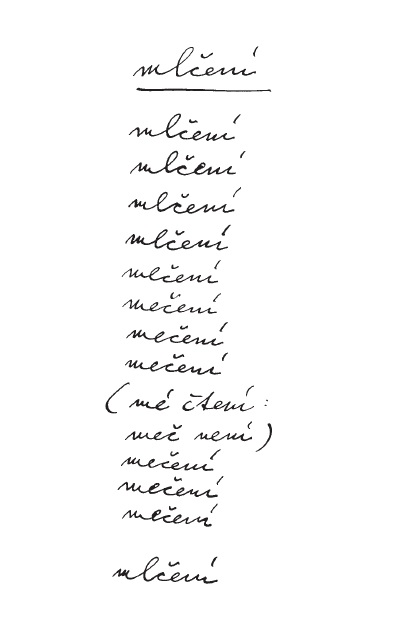 mlčení
mlčení
mlčení
mlčení
mlčení
mlčení
mečení
mečení
mečení
(mé čtení:
meč není)
mečení
mečení
mlčení
mlčení